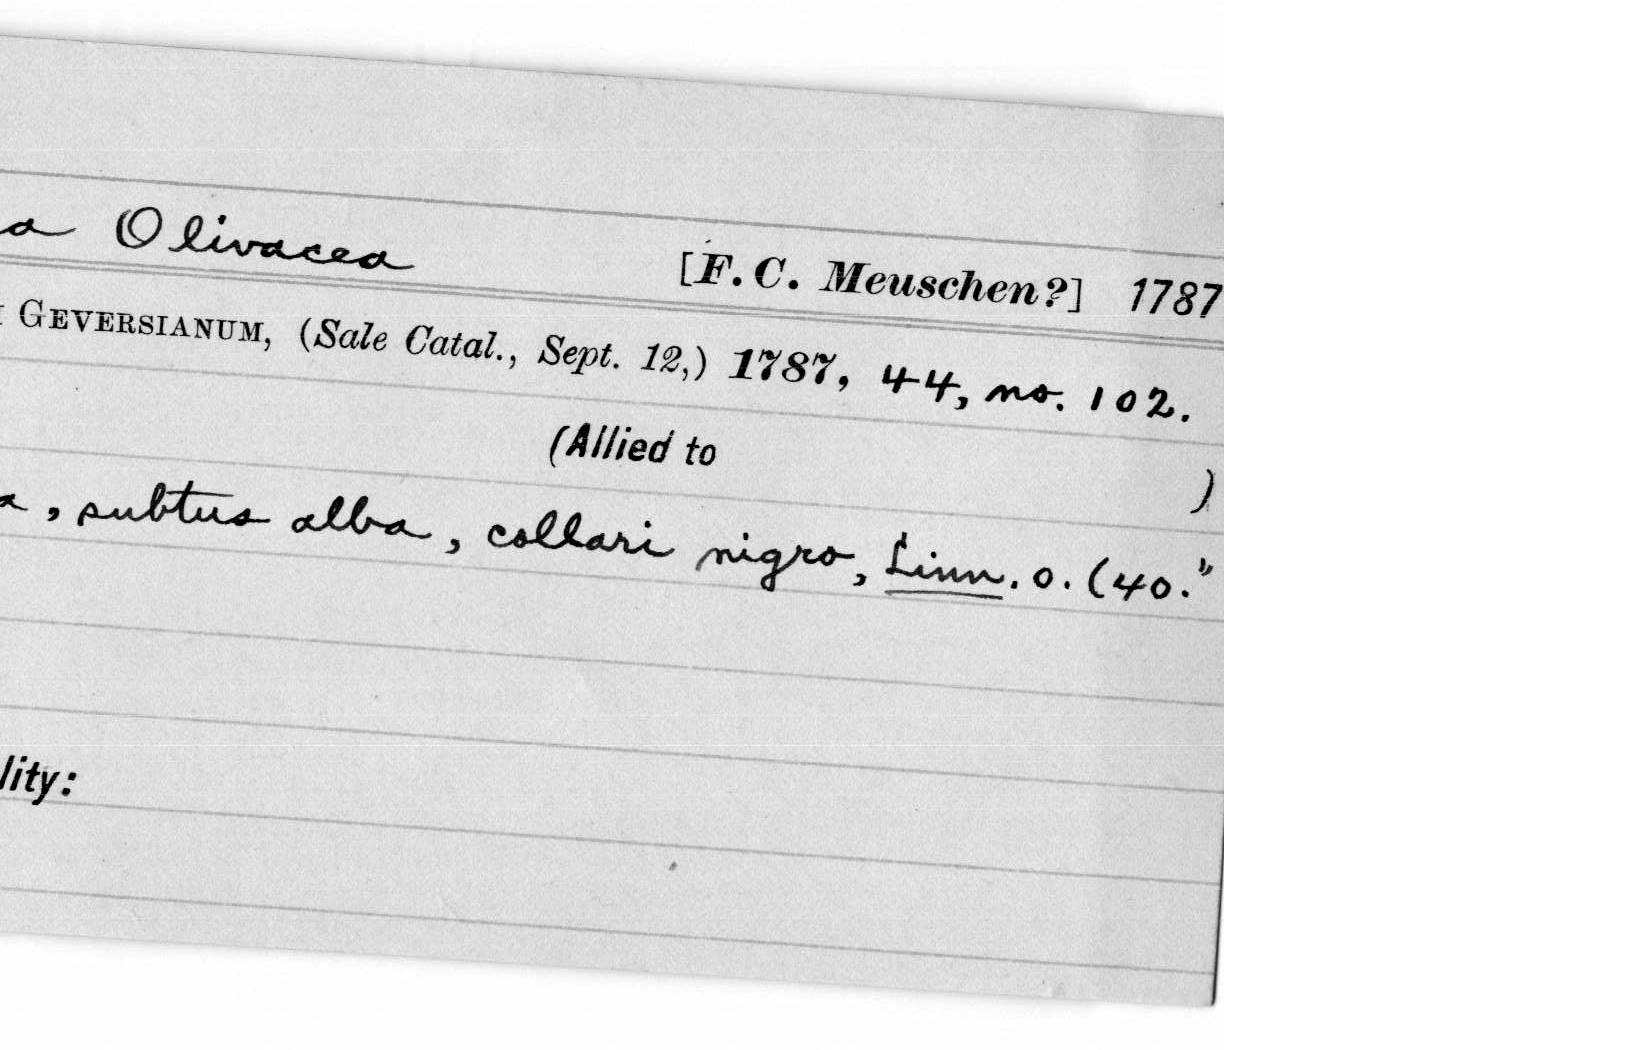 a Olivacea [F. C. Meuschen?] 1787
GEVERSIANUM, (Sale Catal., Sept. 12,) 1787, 44, no. 102.
(Allied to )
a, subtus alba, collari nigro, Linn. o. (40."
lity: